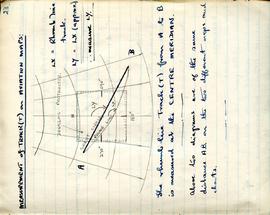 23
MEASUREMENT OF TRACK (T) ON AVIATION MAPS:
LX = Rhumb line track.
LY = LX (approx)
∴ MEASURE LY.
A
B
LX
LY
The rhumb line Track (T) from A to B
is measured at the CENTRE MERIDIAN.
Above two diagrams are of the same
distance AB on the two different maps and
charts.